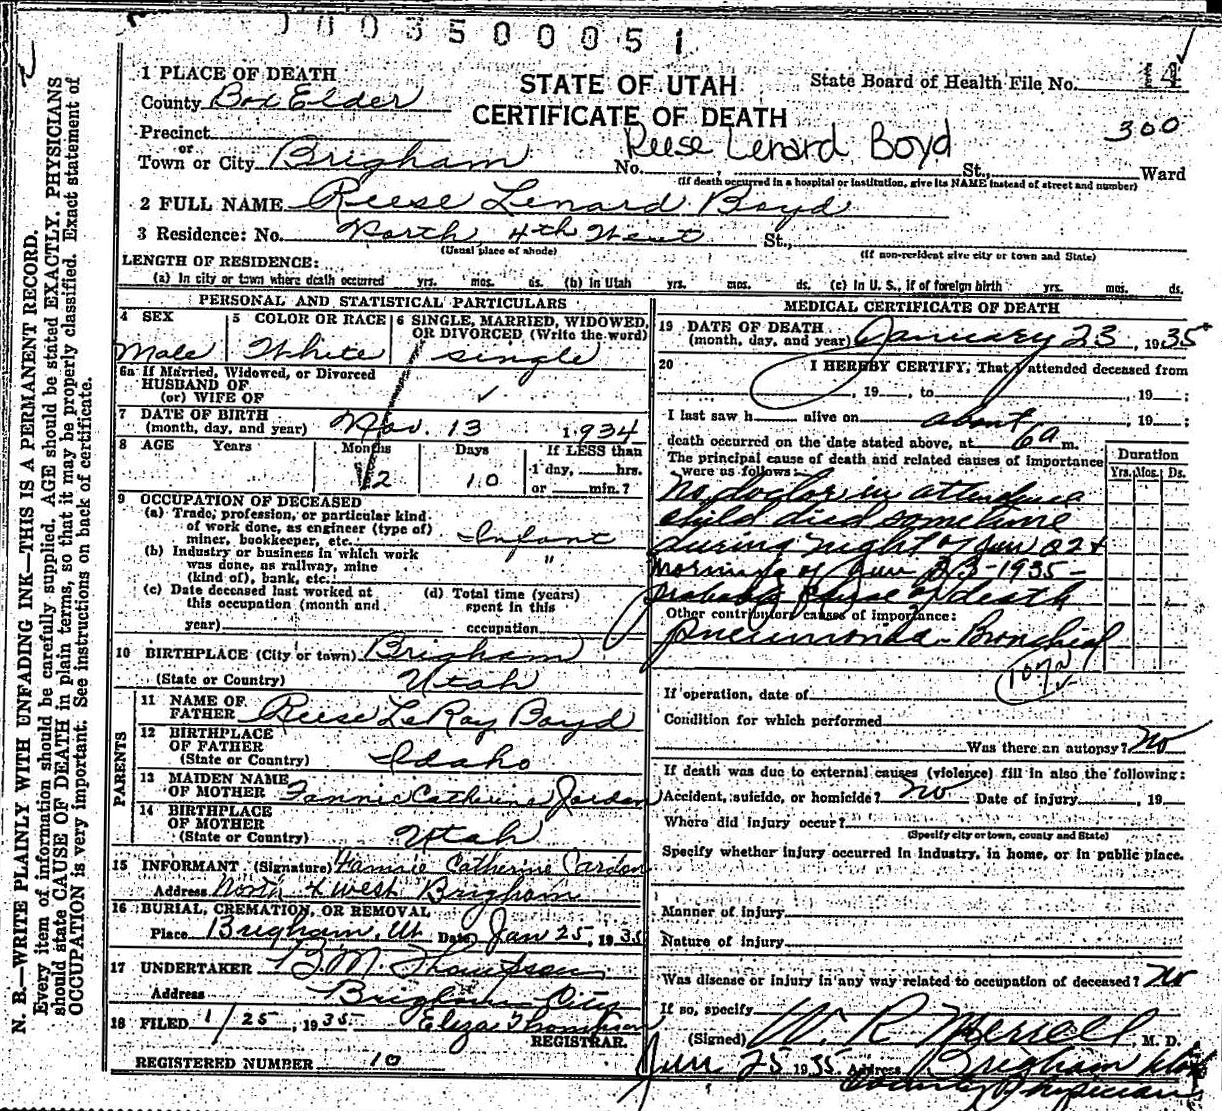 1003500051
1 PLACE OF DEATH
County Box Elder
STATE OF UTAH
CERTIFICATE OF DEATH
State Board of Health File No. 14
300
Precinct
or
Town or City Brigham No. , St., Ward
Reese Lenard Boyd
(If death occurred in a hospital or institution, give its NAME instead of street and number)
2 FULL NAME Reese Lenard Boyd
3 Residence: No. North 4th West St.,
(Usual place of abode)
(If non-resident give city or town and State)
LENGTH OF RESIDENCE:
(a) In city or town where death occurred yrs. mos. ds. (b) In Utah yrs. mos. ds. (c) In U. S., if of foreign birth yrs. mos. ds.
PERSONAL AND STATISTICAL PARTICULARS
4 SEX Male
5 COLOR OR RACE White
6 SINGLE, MARRIED, WIDOWED, OR DIVORCED (Write the word) single
6a If Married, Widowed, or Divorced
HUSBAND OF
(or) WIFE OF
7 DATE OF BIRTH
(month, day, and year) Nov. 13 1934
8 AGE Years Months 2 Days 10 If LESS than
1 day, hrs.
or min.?
9 OCCUPATION OF DECEASED
(a) Trade, profession, or particular kind
of work done, as engineer (type of)
miner, bookkeeper, etc. Infant
(b) Industry or business in which work
was done, as railway, mine
(kind of), bank, etc. "
(c) Date deceased last worked at
this occupation (month and
year)
(d) Total time (years)
spent in this
occupation
10 BIRTHPLACE (City or town) Brigham
(State or Country) Utah
PARENTS
11 NAME OF
FATHER Reese LeRay Boyd
12 BIRTHPLACE
OF FATHER
(State or Country) Idaho
13 MAIDEN NAME
OF MOTHER Fannie Catherine Jordan
14 BIRTHPLACE
OF MOTHER
(State or Country) Utah
15 INFORMANT (Signature) Fannie Catherine
Address North 4 West Brigham
16 BURIAL, CREMATION, OR REMOVAL
Place Brigham, Ut Date Jan 25, 1935
17 UNDERTAKER B. M. Thompson
Address Brigham City
18 FILED 1/25, 1935 Eliza Thompson
REGISTRAR.
REGISTERED NUMBER 10
MEDICAL CERTIFICATE OF DEATH
19 DATE OF DEATH
(month, day, and year) January 23, 1935
20 I HEREBY CERTIFY, That I attended deceased from
, 19 , to , 19 ;
I last saw h alive on , 19 ;
about
death occurred on the date stated above, at 6 a m.
The principal cause of death and related causes of importance
were as follows:
Duration
Yrs. Mos. Ds.
No doctor in attendance
child died sometime
during night of Jan 22 +
morning of Jan 23-1935-
probable cause of death
Other contributory causes of importance:
pneumonia - Bronchial
107a
If operation, date of
Condition for which performed
Was there an autopsy? No
If death was due to external causes (violence) fill in also the following:
Accident, suicide, or homicide? No Date of injury , 19
Where did injury occur?
(Specify city or town, county and State)
Specify whether injury occurred in industry, in home, or in public place.
Manner of injury
Nature of injury
Was disease or injury in any way related to occupation of deceased? No
If so, specify
(Signed) W. R. Merrell M. D.
Jan 25 1935 Address Brigham Utah
County Physician
N. B.—WRITE PLAINLY WITH UNFADING INK—THIS IS A PERMANENT RECORD.
Every item of information should be carefully supplied. AGE should be stated EXACTLY. PHYSICIANS
should state CAUSE OF DEATH in plain terms, so that it may be properly classified. Exact statement of
OCCUPATION is very important. See instructions on back of certificate.